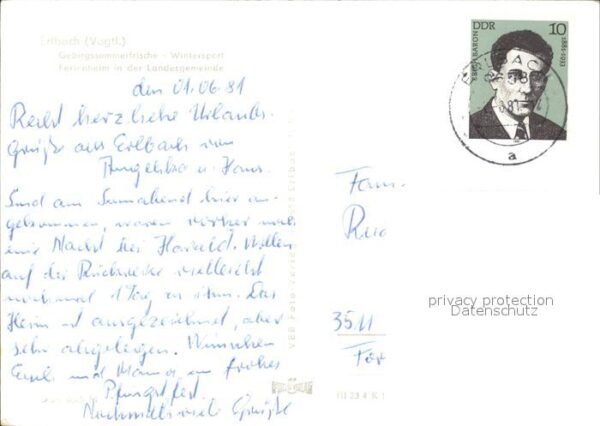 Erlbach (Vogtl.)
Gebirgssommerfrische - Wintersport
Ferienheim in der Landesgemeinde
den 01.06.81
Recht herzliche Urlaubs-
Grüße aus Erlbach von
Angelika u. Hans.
Sind am Sonnabend hier an-
gekommen, waren vorher noch
eine Nacht bei Harald. Wollen
auf der Rückreise vielleicht
nochmal 1 Tag zu ihm. Das
Heim ist ausgezeichnet, aber
sehr abgelegen. Wünschen
Euch und Mama ein frohes
Pfingstfest.
Nochmals viele Grüße
DDR 10
1881-1933
a
Fam.
35 11
För
privacy protection
Datenschutz